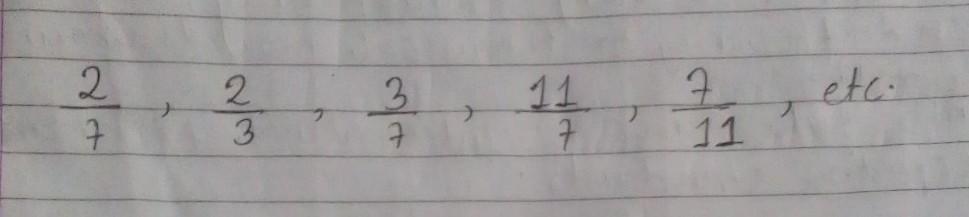 2/7, 2/3, 3/7, 11/7, 7/11, etc.